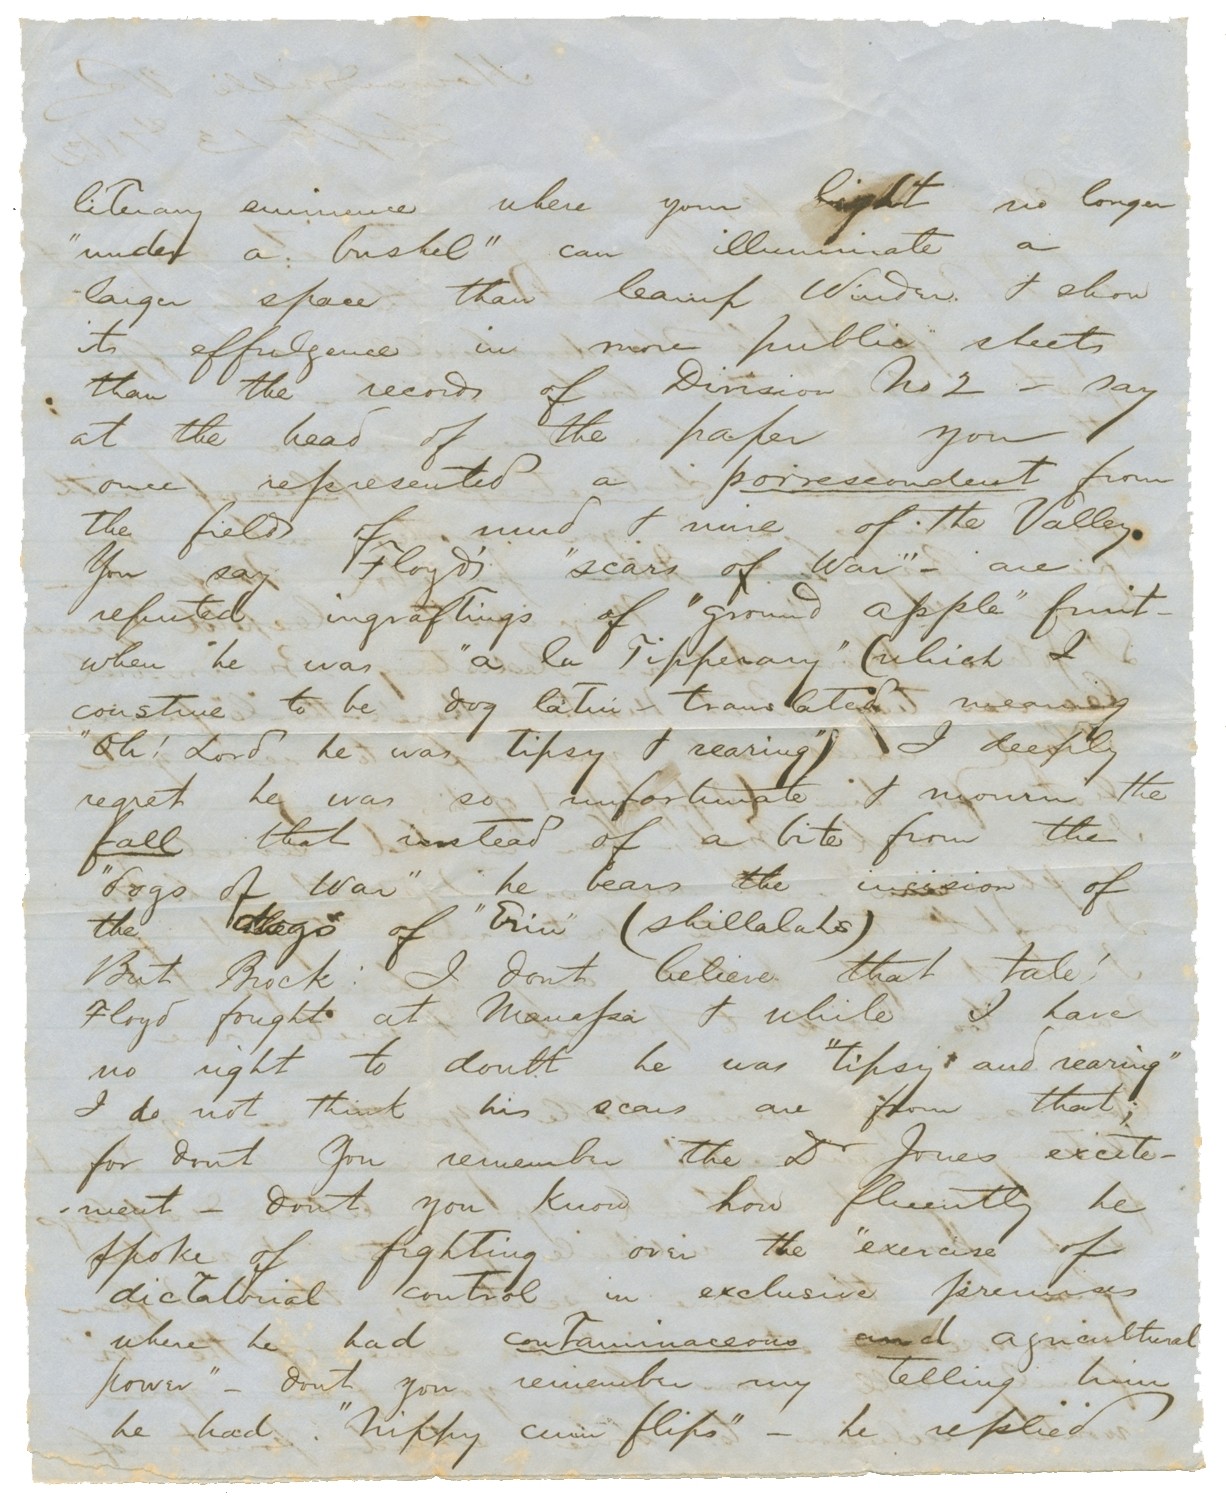 literary eminence where your light no longer
"under a bushel" can illuminate a
larger space than Camp Winder. & show
its effulgence in more "public" sheets
than the records of Division No 2 – say
at the head of the paper you
once represented a porrescondent from
the fields of mud & mire of the Valley.
You say Floyd's "scars of War" – are
reputed ingraftings of "ground apple" fruit –
when he was "a la Tipperary" (which I
construe to be dog latin – translated meaning
"Oh! Lord he was tipsy & rearing") I deeply
regret he was so unfortunate & mourn the
fall that instead of a bite from the
"dogs of War" he bears the incision of
the dogs of "Erin" (shillalahs)
But Brock: I dont believe that tale!
Floyd fought at Manassa & while I have
no right to doubt he was "tipsy and rearing"
I do not think his scars are from that;
for dont You remember the Dr Jones excite-
-ment – dont you know how fluently he
spoke of fighting over the "exercise of
dictatorial control in exclusive premises
where he had contaminaceous and agricultural
power" – dont you remember my telling him
he had "hippy cum flips" – he replied